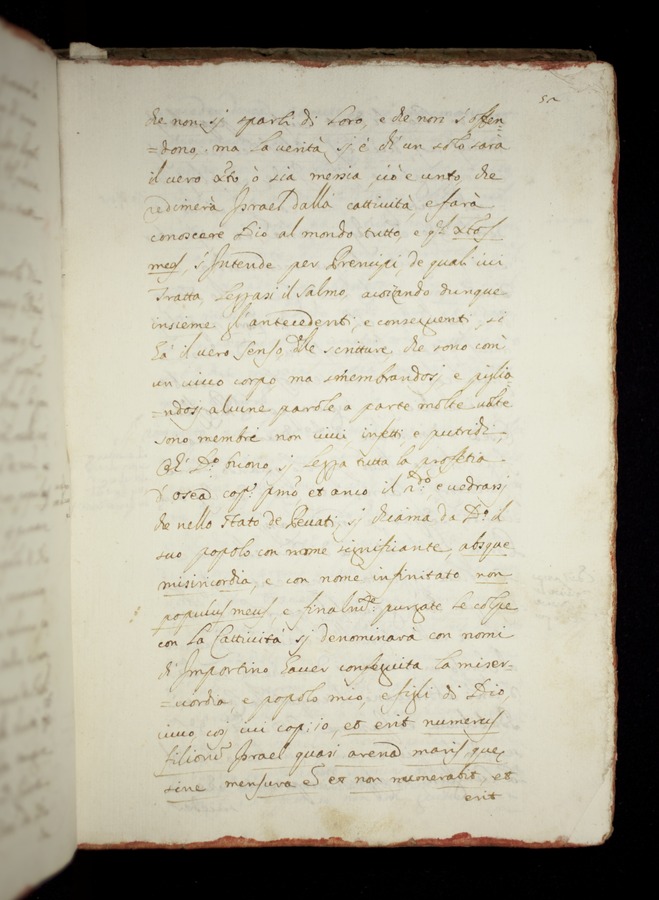 che non si sparli di loro, e che non s'offen=
=dono. ma la verità si è ch'un solo sarà
il vero Xto ò sia messia, ciò è unto, che
redimerà Israel dalla cattività, e farà
conoscere Dio al mondo tutto, e
meus, s'Intende per Prencipi, de quali ivi
Tratta, leggasi il Salmo, accozando dunque
insieme gl'antecedenti, e conseguenti, si
hà il vero senso delle scritture, che sono com
un vivo corpo ma smembrandosi, e piglia=
=ndosi alcune parole a parte molte volte
sono membri non vivi infetti, e putredi,
Dº. buono, si legga tutta la profetia
d'osea cap.º pmō et anco il 2.do e vedrassi
che nello stato de Peccati, si chiama da Dº. il
suo popolo con nome significante, absque
misiricordia, e con nome infinitato non
populus meus, e finalmte. purgate le colpe
con la Cattività si denominarà con nomi
di Importino haver conseguita la miser=
=icordia, e popolo mio, e figli di Dio,
vivo, così ivi cap: 10, et erit numerus
filiorū Israel quasi arena maris que
sine mensura et non numerabit, et
erit